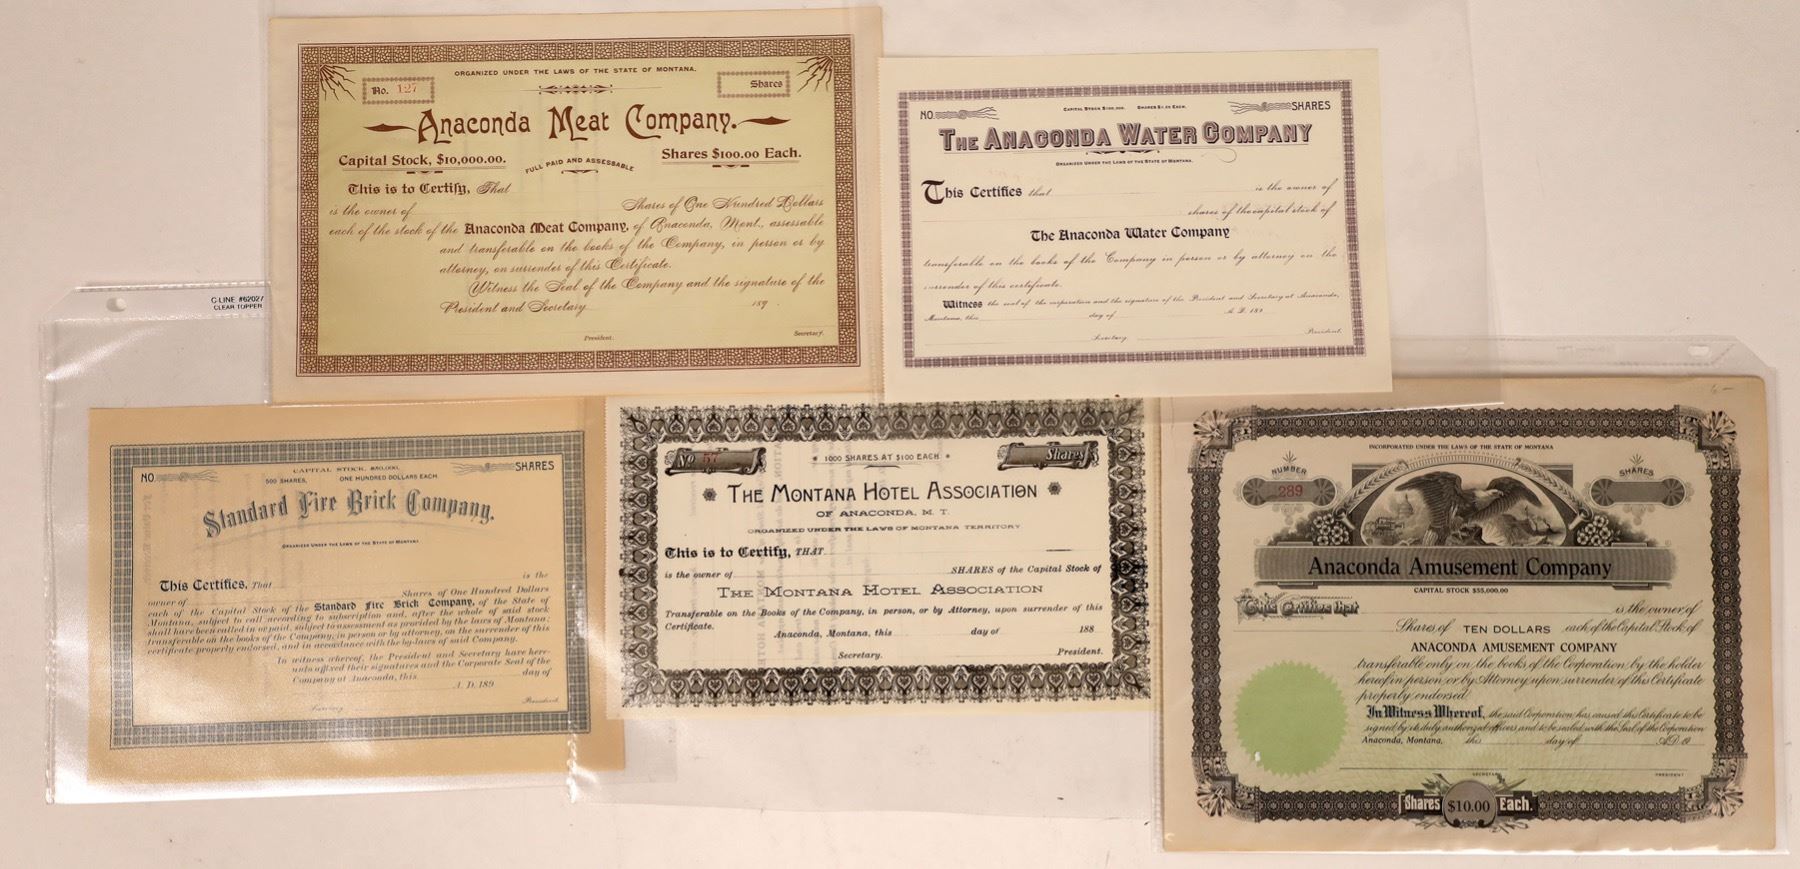 ORGANIZED UNDER THE LAWS OF THE STATE OF MONTANA.
No. 127
Shares
Anaconda Meat Company.
Capital Stock, $10,000.00.
FULL PAID AND ASSESSABLE
Shares $100.00 Each.
This is to Certify, That
is the owner of Shares of One Hundred Dollars
each of the stock of the Anaconda Meat Company, of Anaconda, Mont., assessable
and transferable on the books of the Company, in person or by
attorney, on surrender of this Certificate.
Witness the Seal of the Company and the signature of the
President and Secretary 189
President.
Secretary.
NO.
CAPITAL STOCK $100,000. SHARES
EACH.
SHARES
THE ANACONDA WATER COMPANY
ORGANIZED UNDER THE LAWS OF THE STATE OF MONTANA.
This Certifies that is the owner of
shares of the capital stock of
The Anaconda Water Company
transferable on the books of the Company in person or by attorney on the
surrender of this certificate.
Witness the seal of the corporation and the signature of the President and Secretary at Anaconda,
Montana, this day of A.D. 189
Secretary.
President.
C-LINE #62027
CLEAR TOPPER
NO.
CAPITAL STOCK, $50,000.
500 SHARES, ONE HUNDRED DOLLARS EACH
SHARES
Standard Fire Brick Company.
ORGANIZED UNDER THE LAWS OF THE STATE OF MONTANA
This Certifies, That is the
owner of Shares of One Hundred Dollars
each of the Capital Stock of the Standard Fire Brick Company, of the State of
Montana, subject to call according to subscription and, after the whole of said stock
shall have been called in or paid, subject to assessment as provided by the laws of Montana;
transferable on the books of the Company, in person or by attorney, on the surrender of this
certificate properly endorsed, and in accordance with the by-laws of said Company.
In witness whereof, the President and Secretary have here-
unto affixed their signatures and the Corporate Seal of the
Company at Anaconda, this day of
A.D. 189
Secretary
President
No 57
* 1000 SHARES AT $100 EACH. *
Shares
THE MONTANA HOTEL ASSOCIATION
OF ANACONDA, M. T.
ORGANIZED UNDER THE LAWS OF MONTANA TERRITORY
This is to Certify, THAT
is the owner of SHARES of the Capital Stock of
THE MONTANA HOTEL ASSOCIATION
Transferable on the Books of the Company, in person, or by Attorney, upon surrender of this
Certificate.
Anaconda, Montana, this day of 188
Secretary.
President.
INCORPORATED UNDER THE LAWS OF THE STATE OF MONTANA
NUMBER
289
SHARES
Anaconda Amusement Company
CAPITAL STOCK $55,000.00
This Certifies that is the owner of
Shares of TEN DOLLARS each of the Capital Stock of
ANACONDA AMUSEMENT COMPANY
transferable only on the books of the Corporation by the holder
hereof in person or by Attorney upon surrender of this Certificate
properly endorsed.
In Witness Whereof, the said Corporation has caused this Certificate to be
signed by its duly authorized officers and to be sealed with the Seal of the Corporation
Anaconda, Montana, this day of A.D. 19
SECRETARY
PRESIDENT
Shares $10.00 Each.